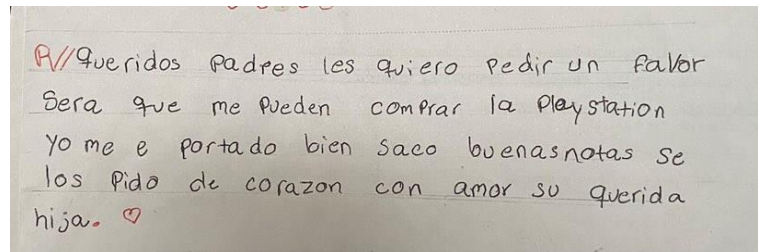 R//queridos padres les quiero pedir un favor
Sera que me pueden comprar la playstation
yo me e portado bien saco buenasnotas se
los pido de corazon con amor su querida
hija. ♡